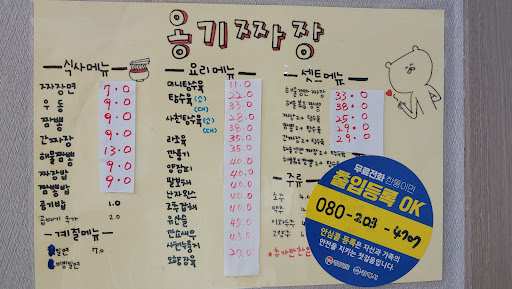 옹기짜장
식사메뉴
짜장면 7.0
우동 9.0
짬뽕 9.0
간짜장 9.0
해물짬뽕 13.0
짜장밥 9.0
짬뽕밥 9.0
공기밥 1.0
곱배기 추가 2.0
계절메뉴
냉면 7.0
요리메뉴
미니탕수육 11.0
탕수육 (소) 22.0
(대) 33.0
사천탕수육 (소) 28.0
(대) 38.0
라조육 35.0
깐풍기 35.0
양장피 40.0
팔보채 40.0
난자완스 40.0
고추잡채 40.0
유산슬 40.0
깐쇼새우 45.0
사천누룽지 43.0
모듬장육 27.0
셋트메뉴
33.0
38.0
25.0
29.0
29.0
주류
소주
맥주
이과두주
고량주
무료전화 한통이면
출입등록 OK
080-203-4707
안심콜 등록은 자신과 가족의
안전을 지키는 첫걸음입니다.